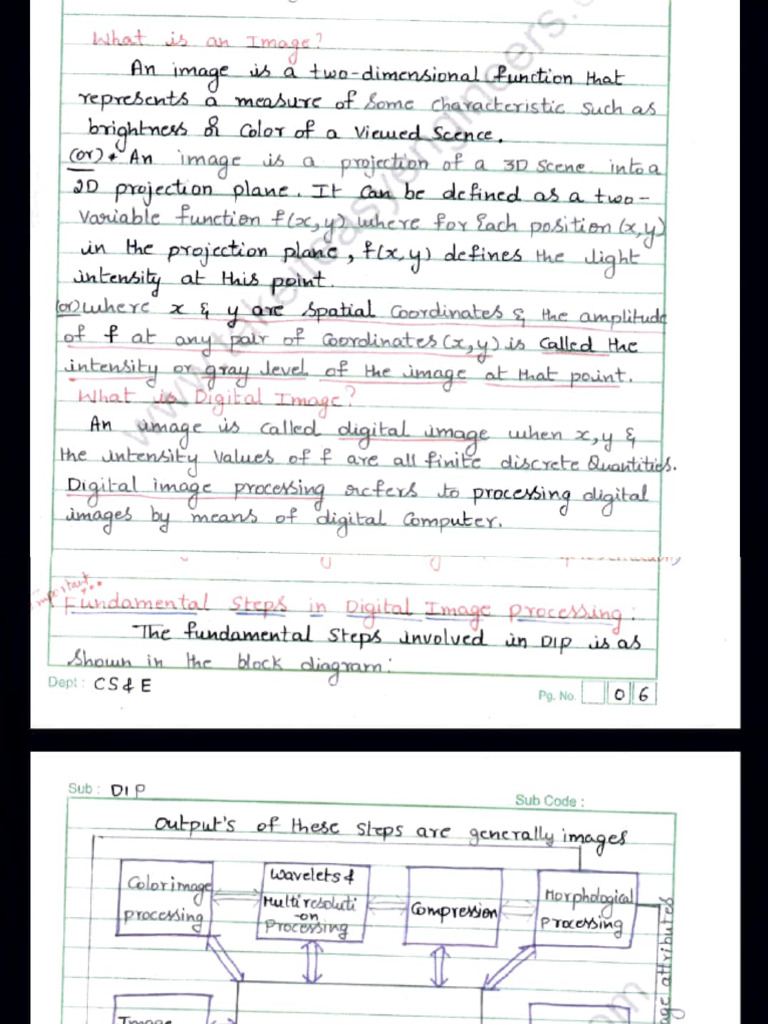 What is an Image?
An image is a two-dimensional function that
represents a measure of some characteristic such as
brightness or color of a viewed scence.
(or) * An image is a projection of a 3D scene into a
2D projection plane. It can be defined as a two-
variable function f(x,y) where for each position (x,y)
in the projection plane, f(x,y) defines the light
intensity at this point.
(or) where x & y are spatial coordinates & the amplitude
of f at any pair of coordinates (x,y) is called the
intensity or gray level of the image at that point.
What is Digital Image?
An image is called digital image when x,y &
the intensity values of f are all finite discrete Quantities.
Digital image processing refers to processing digital
images by means of digital computer.
Important...
Fundamental Steps in Digital Image Processing:
The fundamental steps involved in DIP is as
shown in the block diagram:
Dept : CS & E
Pg. No. 06
Sub : DIP
Sub Code :
output's of these steps are generally images
Color image
processing
Wavelets &
Multiresoluti
-on
Processing
Compression
Morphological
processing
Image
www.takeiteasyengineers.com